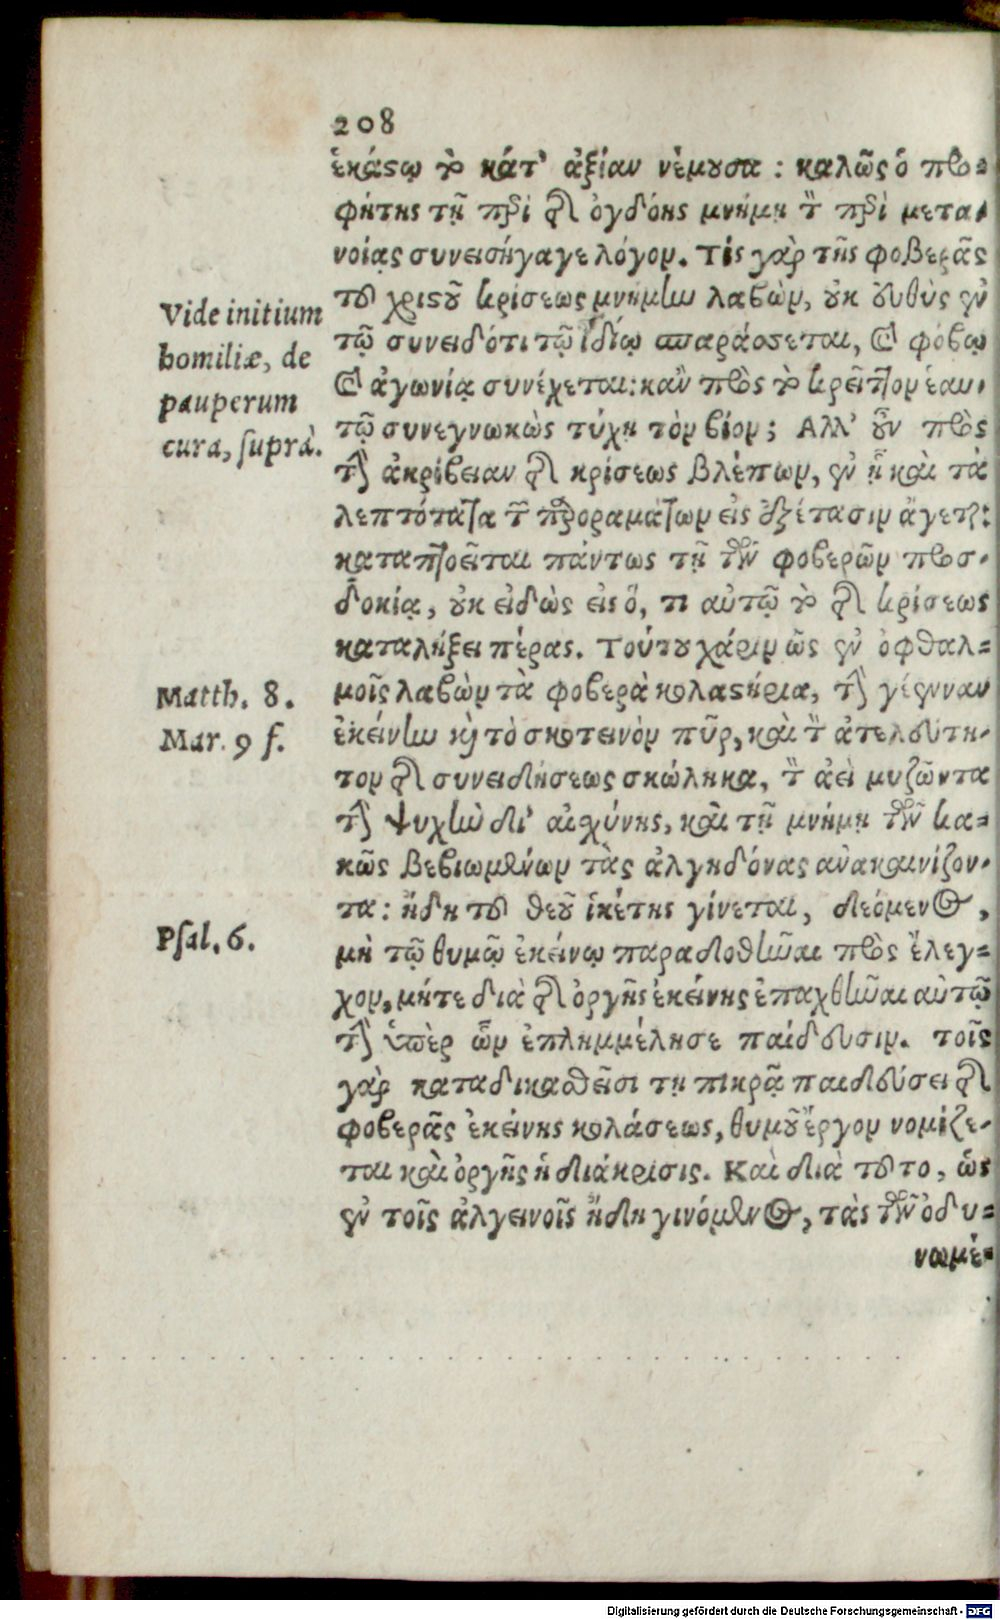 208
ἑκάστῳ τὸ κάτ' ἀξίαν νέμουσα : καλῶς ὁ προ-
φήτης τῇ περὶ τῆς ὀγδόης μνήμῃ τὸν περὶ μετα-
νοίας συνεισήγαγε λόγον. Τίς γὰρ τῆς φοβερᾶς
τοῦ χριστοῦ κρίσεως μνήμην λαβὼν, οὐκ εὐθὺς ἐν
τῷ συνειδότι τῷ ἰδίῳ σπαράσσεται, καὶ φόβῳ
καὶ ἀγωνίᾳ συνέχεται: κἂν πρὸς τὸ κρεῖττον ἑαυ-
τῷ συνεγνωκὼς τύχῃ τὸν βίον; Ἀλλ' οὖν πρὸς
τὴν ἀκρίβειαν τῆς κρίσεως βλέπων, ἐν ᾗ καὶ τὰ
λεπτότατα τῶν παροραμάτων εἰς ἐξέτασιν ἄγεται:
καταπτοεῖται πάντως τῇ τῶν φοβερῶν προσ-
δοκίᾳ, οὐκ εἰδὼς εἰς ὅ, τι αὐτῷ τὸ τῆς κρίσεως
καταλήξει πέρας. Τούτου χάριν ὡς ἐν ὀφθαλ-
μοῖς λαβὼν τὰ φοβερὰ κολαστήρια, τὴν γέενναν
ἐκείνην καὶ τὸ σκοτεινὸν πῦρ, καὶ τὸν ἀτελεύτη-
τον τῆς συνειδήσεως σκώληκα, τὸν ἀεὶ μυζῶντα
τὴν ψυχὴν δι' αἰσχύνης, καὶ τῇ μνήμῃ τῶν κα-
κῶς βεβιωμένων τὰς ἀλγηδόνας ἀνακαινίζον-
τα: ἤδη τοῦ θεοῦ ἱκέτης γίνεται, δεόμενος,
μὴ τῷ θυμῷ ἐκείνῳ παραδοθῆναι πρὸς ἔλεγ-
χον, μήτε διὰ τῆς ὀργῆς ἐκείνης ἐπαχθῆναι αὐτῷ
τὴν ὑπὲρ ὧν ἐπλημμέλησε παίδευσιν. τοῖς
γὰρ καταδικασθεῖσι τῇ πικρᾷ παιδεύσει τῆς
φοβερᾶς ἐκείνης κολάσεως, θυμοῦ ἔργον νομίζε-
ται καὶ ὀργῆς ἡ διάκρισις. Καὶ διὰ τοῦτο, ὡς
ἐν τοῖς ἀλγεινοῖς ἤδη γινόμενος, τὰς τῶν ὀδυ-
νωμέ-
Vide initium
homiliæ, de
pauperum
cura, suprà.
Matth. 8.
Mar. 9 f.
Psal. 6.
Digitalisierung gefördert durch die Deutsche Forschungsgemeinschaft - DFG